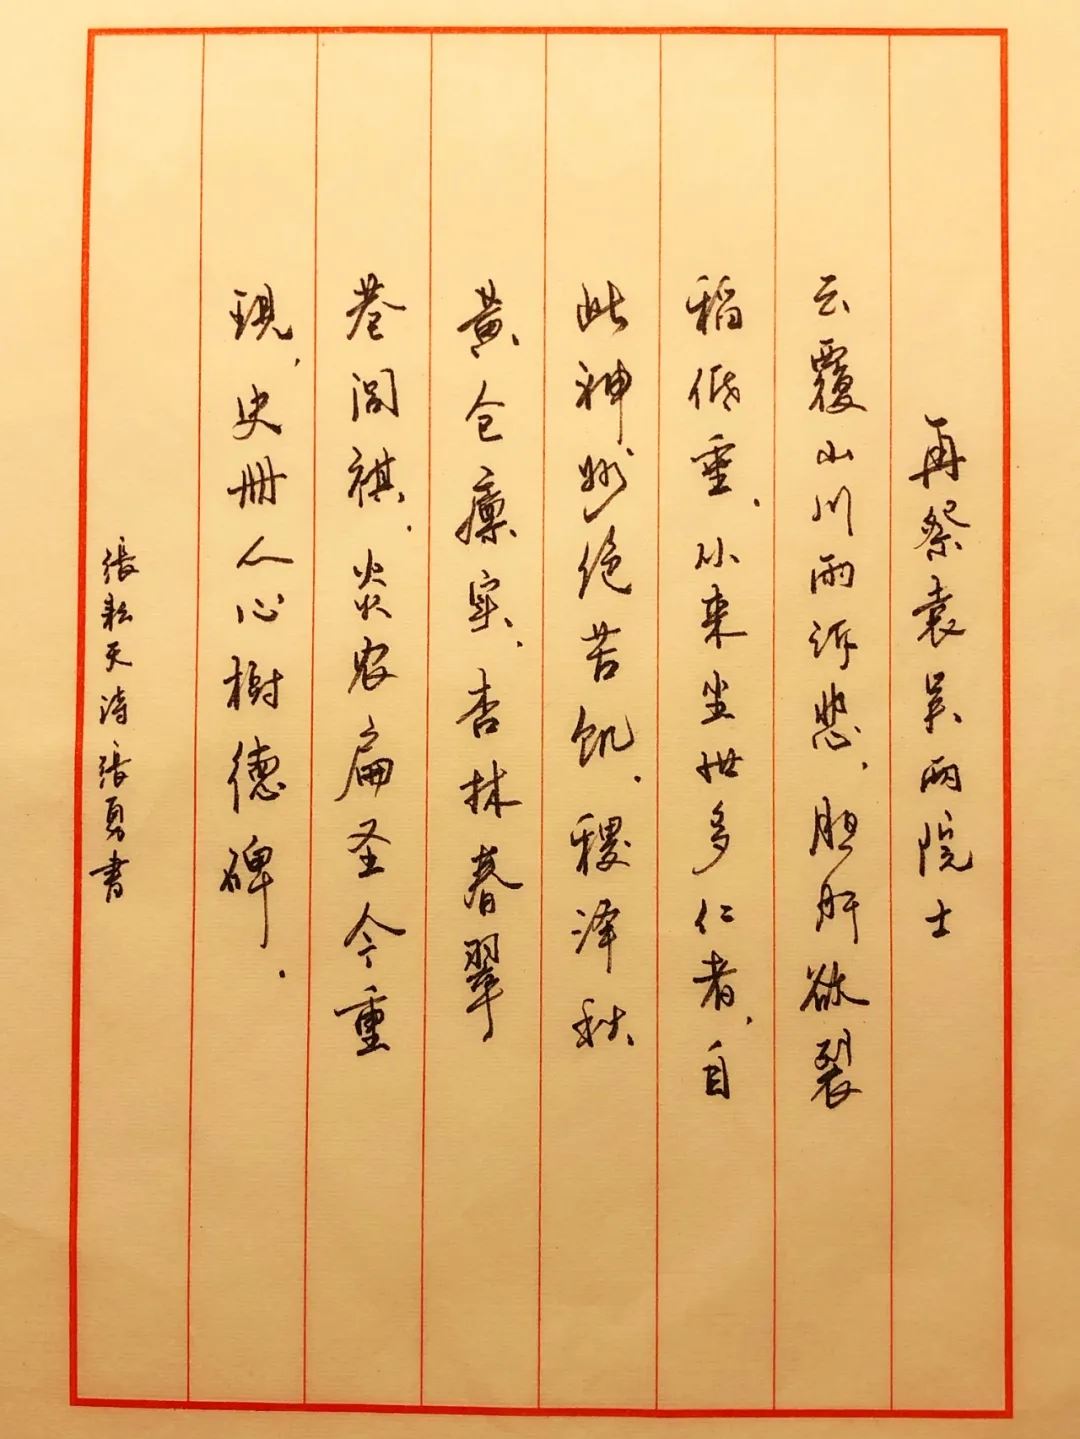 再祭袁吴两院士
云覆山川雨诉悲.胆肝欲裂
稻低垂.从来尘世多仁者,自
此神州绝苦饥.稷泽秋
黄仓廪实,杏林春翠
巷闾祺.炎农扁圣今重
现,史册人心树德碑.
張耘天诗張勇書